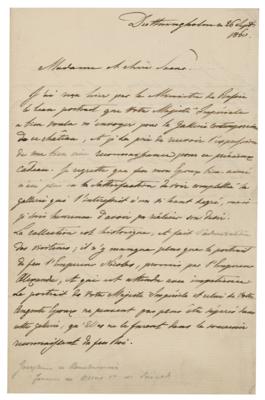 Drottningholm ce 26 Sept.
1860.
Madame et chère Soeur!
J'ai reçu hier par le Ministre de Russie
le beau portrait que Votre Majesté Impériale
a bien voulu m'envoyer pour la Gallerie contemporaine
de ce château, et j'ose la prie de recevoir l'expression
de ma bien vive reconnaissance pour ce précieux
cadeau. Je regrette que feu mon Epoux bien-aimé
n'ait pas eu la satisfaction de voir complettée la
gallerie que l'intéressait à un si haut degré, mais
je suis heureuse d'avoir pu réaliser son désir.
La collection est historique, et fait l'admiration
des visiteurs; il n'y manque plus que le portrait
de feu l'Empereur Nicolas, promis par l'Empereur
Alexandre, et qui est attendu avec impatience.
Le portrait de Votre Majesté Impériale et celui de Votre
Auguste Epoux ne peuvent pas plus être séparés dans
cette galerie, qu'Ils ne le furent dans le souvenir
reconnaissant de feu le Roi.
Josephine de Beauharnais
femme de Oscar Ier de Suède